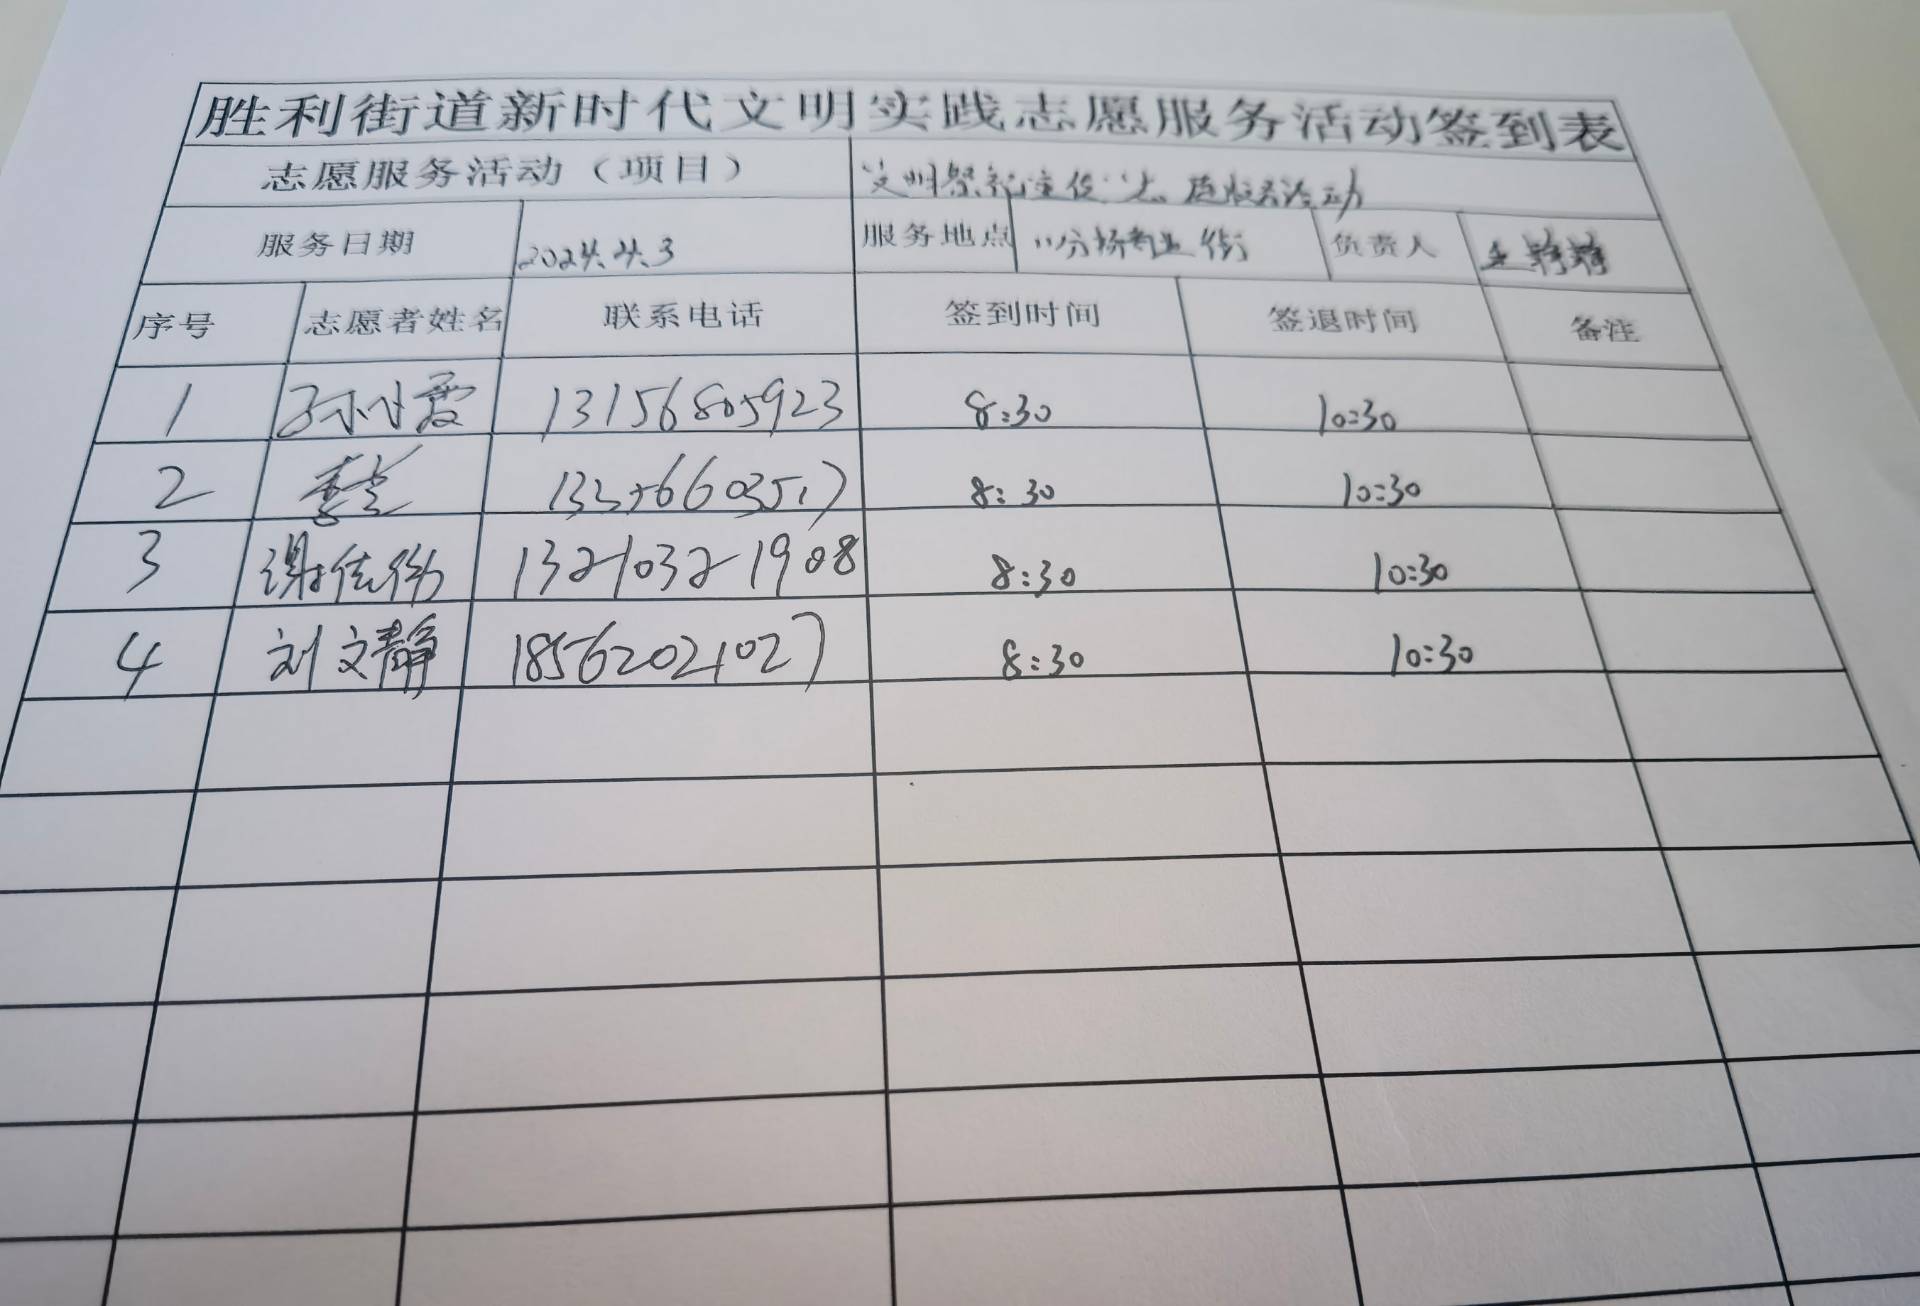 胜利街道新时代文明实践志愿服务活动签到表
志愿服务活动（项目） 文明祭祀宣传 志愿服务活动
服务日期 2024.4.3 服务地点 街 负责人
序号 志愿者姓名 联系电话 签到时间 签退时间 备注
1 孙小霞 13156805923 8:30 10:30
2 8:30 10:30
3 谢佳衡 13210321908 8:30 10:30
4 刘文静 18562021027 8:30 10:30